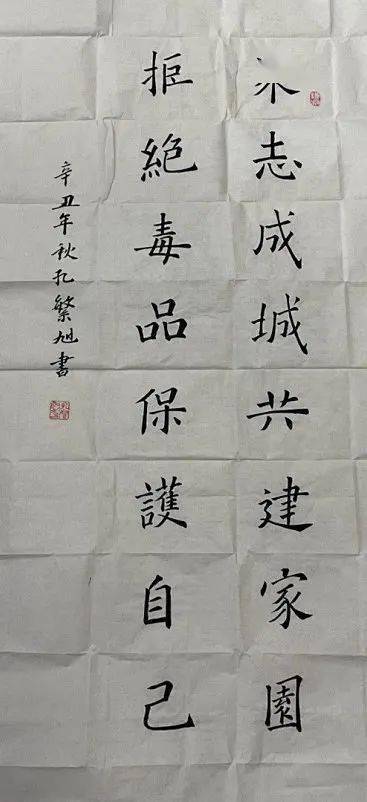 志成城共建家園
拒絕毒品保護自己
辛丑年秋孔繁旭書